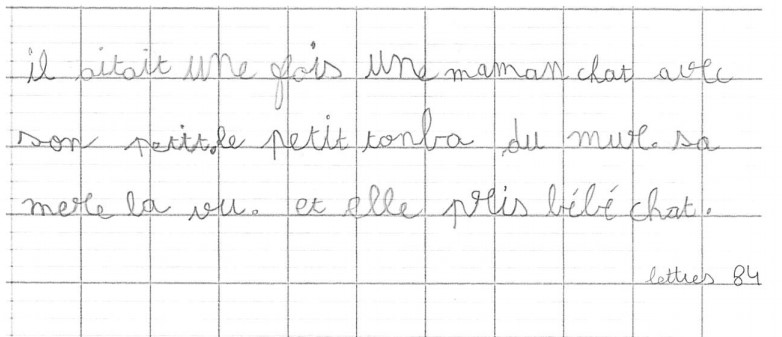 il aitait une fois une maman chat avec
son petit. le petit tonba du mur. sa
mere la vu. et elle pris bébé chat.
lettres 84